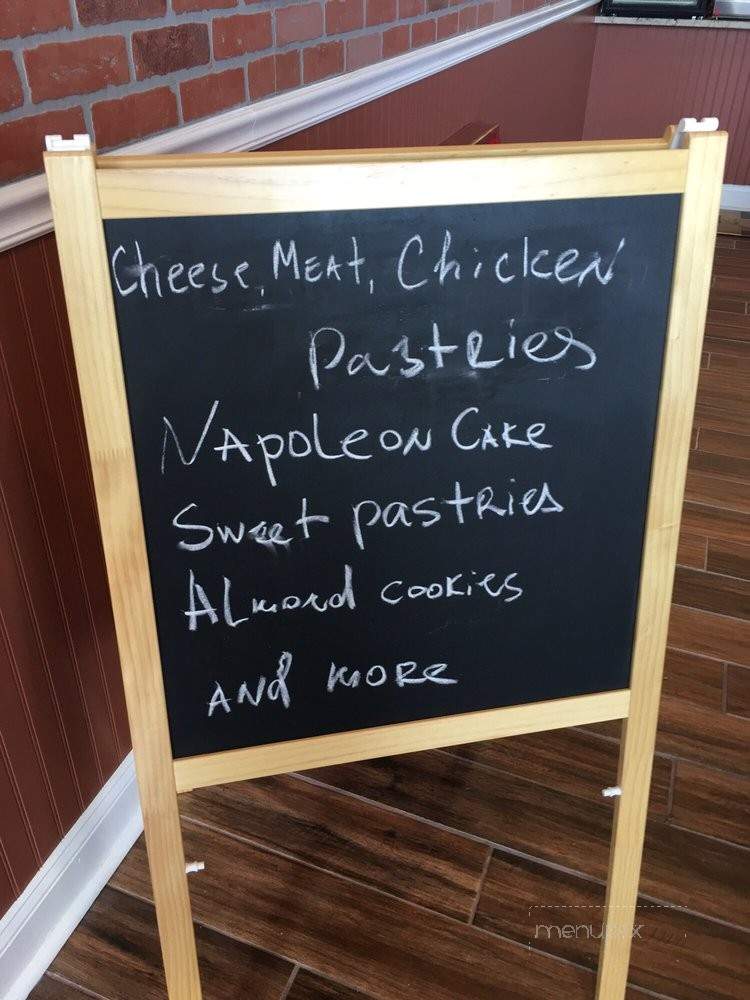 Cheese, Meat, Chicken
Pastries
Napoleon Cake
Sweet pastries
Almond cookies
And more
menupix